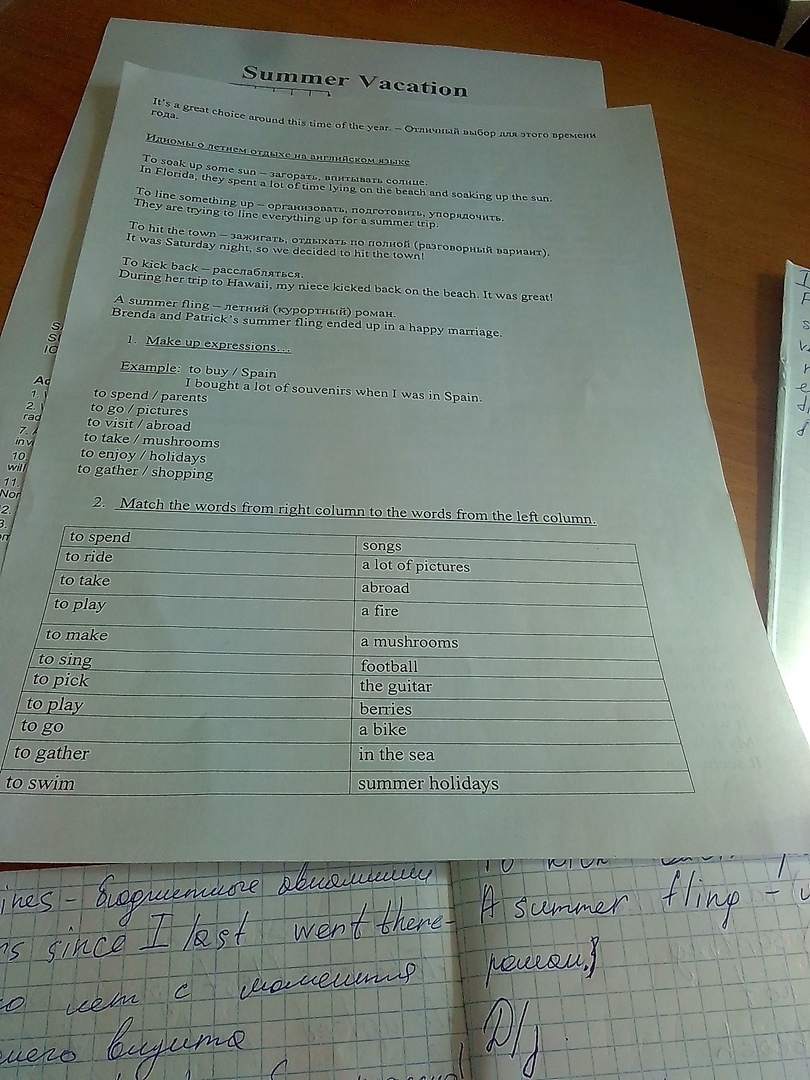 Summer Vacation
It's a great choice around this time of the year. – Отличный выбор для этого времени
года.
Идиомы о летнем отдыхе на английском языке
To soak up some sun – загорать, впитывать солнце.
In Florida, they spent a lot of time lying on the beach and soaking up the sun.
To line something up – организовать, подготовить, упорядочить.
They are trying to line everything up for a summer trip.
To hit the town – зажигать, отдыхать по полной (разговорный вариант).
It was Saturday night, so we decided to hit the town!
To kick back – расслабляться.
During her trip to Hawaii, my niece kicked back on the beach. It was great!
A summer fling – летний (курортный) роман.
Brenda and Patrick's summer fling ended up in a happy marriage.
1. Make up expressions…
Example: to buy / Spain
I bought a lot of souvenirs when I was in Spain.
to spend / parents
to go / pictures
to visit / abroad
to take / mushrooms
to enjoy / holidays
to gather / shopping
2. Match the words from right column to the words from the left column.
to spend songs
to ride a lot of pictures
to take abroad
to play a fire
to make a mushrooms
to sing football
to pick the guitar
to play berries
to go a bike
to gather in the sea
to swim summer holidays
1.
2.
7.
10.
will
11.
12.
3.
ines – бюджетные авиалинии
since I last went there –
лет с момента
визита
A summer fling –
роман.
D/